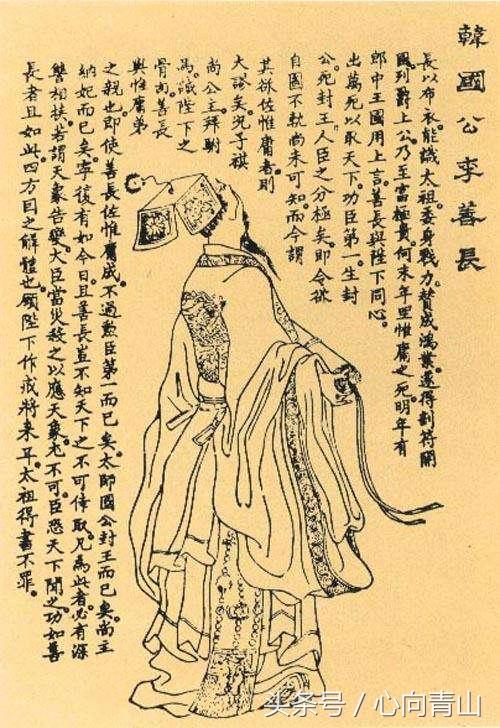 韓國公李善長
長以布衣能識太祖。委身戰力。贊成鴻業。遂得剖符開
國列爵上公。乃至富極貴。何末年里惟庸之死。明年有
郎中王國用上言。善長與陛下同心。
出萬死以取天下。功臣第一。生封
公。死封王。人臣之分極矣。即令欲
自圖不軌。尚未可知。而今謂
其欲佐惟庸者。則
大謬矣。況子祺
尚公主。拜駙
馬。誠陛下之
骨肉。善長
與惟庸弟
之親也。即使善長佐惟庸成。不過勲臣第一而已矣。太師國公封王而已矣。尚主
納妃而已矣。寧復有如今日。且善長豈不知天下之不可倖取。凡為此者。必有深
讐相扶。若謂天象告變。大臣當災。殺之以應天象。尤不可。臣恐天下聞之。功如善
長者且如此。四方因之解體也。願陛下作戒將來耳。太祖得書不罪。
头条号 / 心向青山